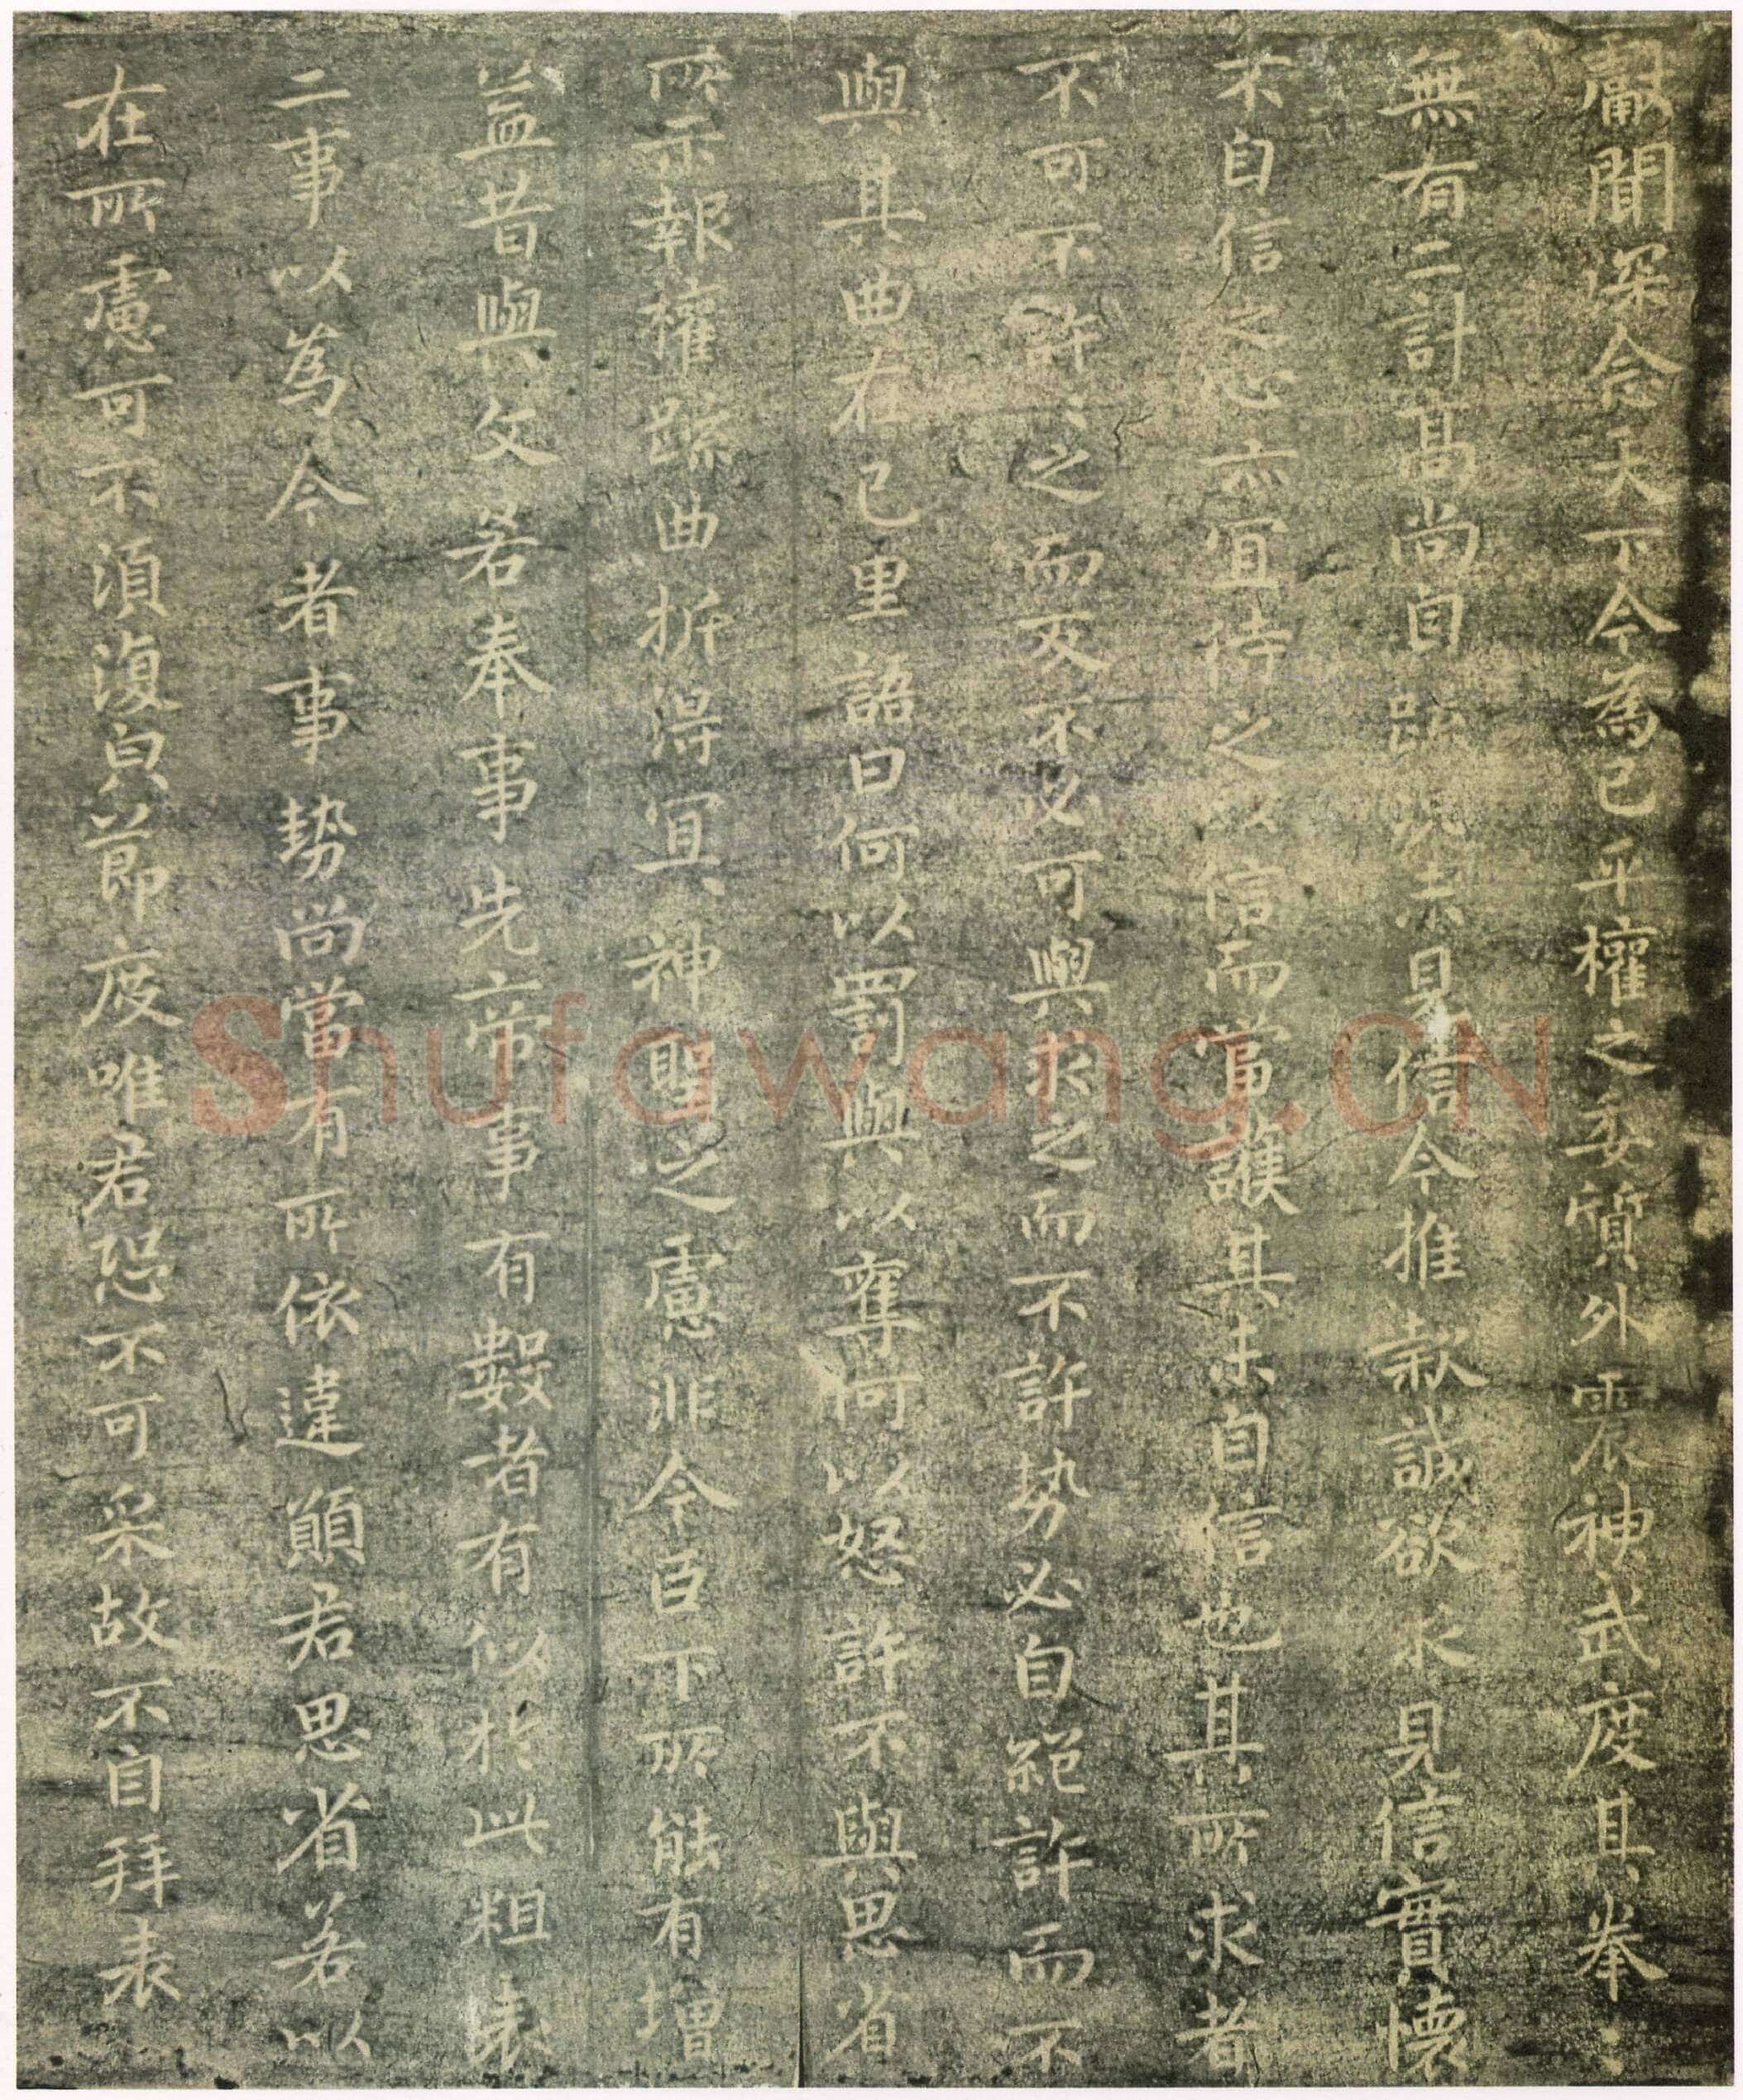 獻聞深念天下今為已平權之委質外震神武度其拳〻
無有二計高尚自疏況未見信今推款誠欲求見信實懷
不自信之心亦宜待之以信而當護其未自信也其所求者
不可不許〻之而反不必可與求之而不許勢必自絕許而不
與其曲在己里語曰何以罰與以奪何以怒許不與思省
所示報權疏曲折得宜神聖之慮非今臣下所能有增
益昔與文若奉事先帝事有數者有似於此粗表
二事以為今者事勢尚當有所依違願君思省若以
在所慮可不須復皃節度唯君恐不可采故不自拜表
Shufawang.CN